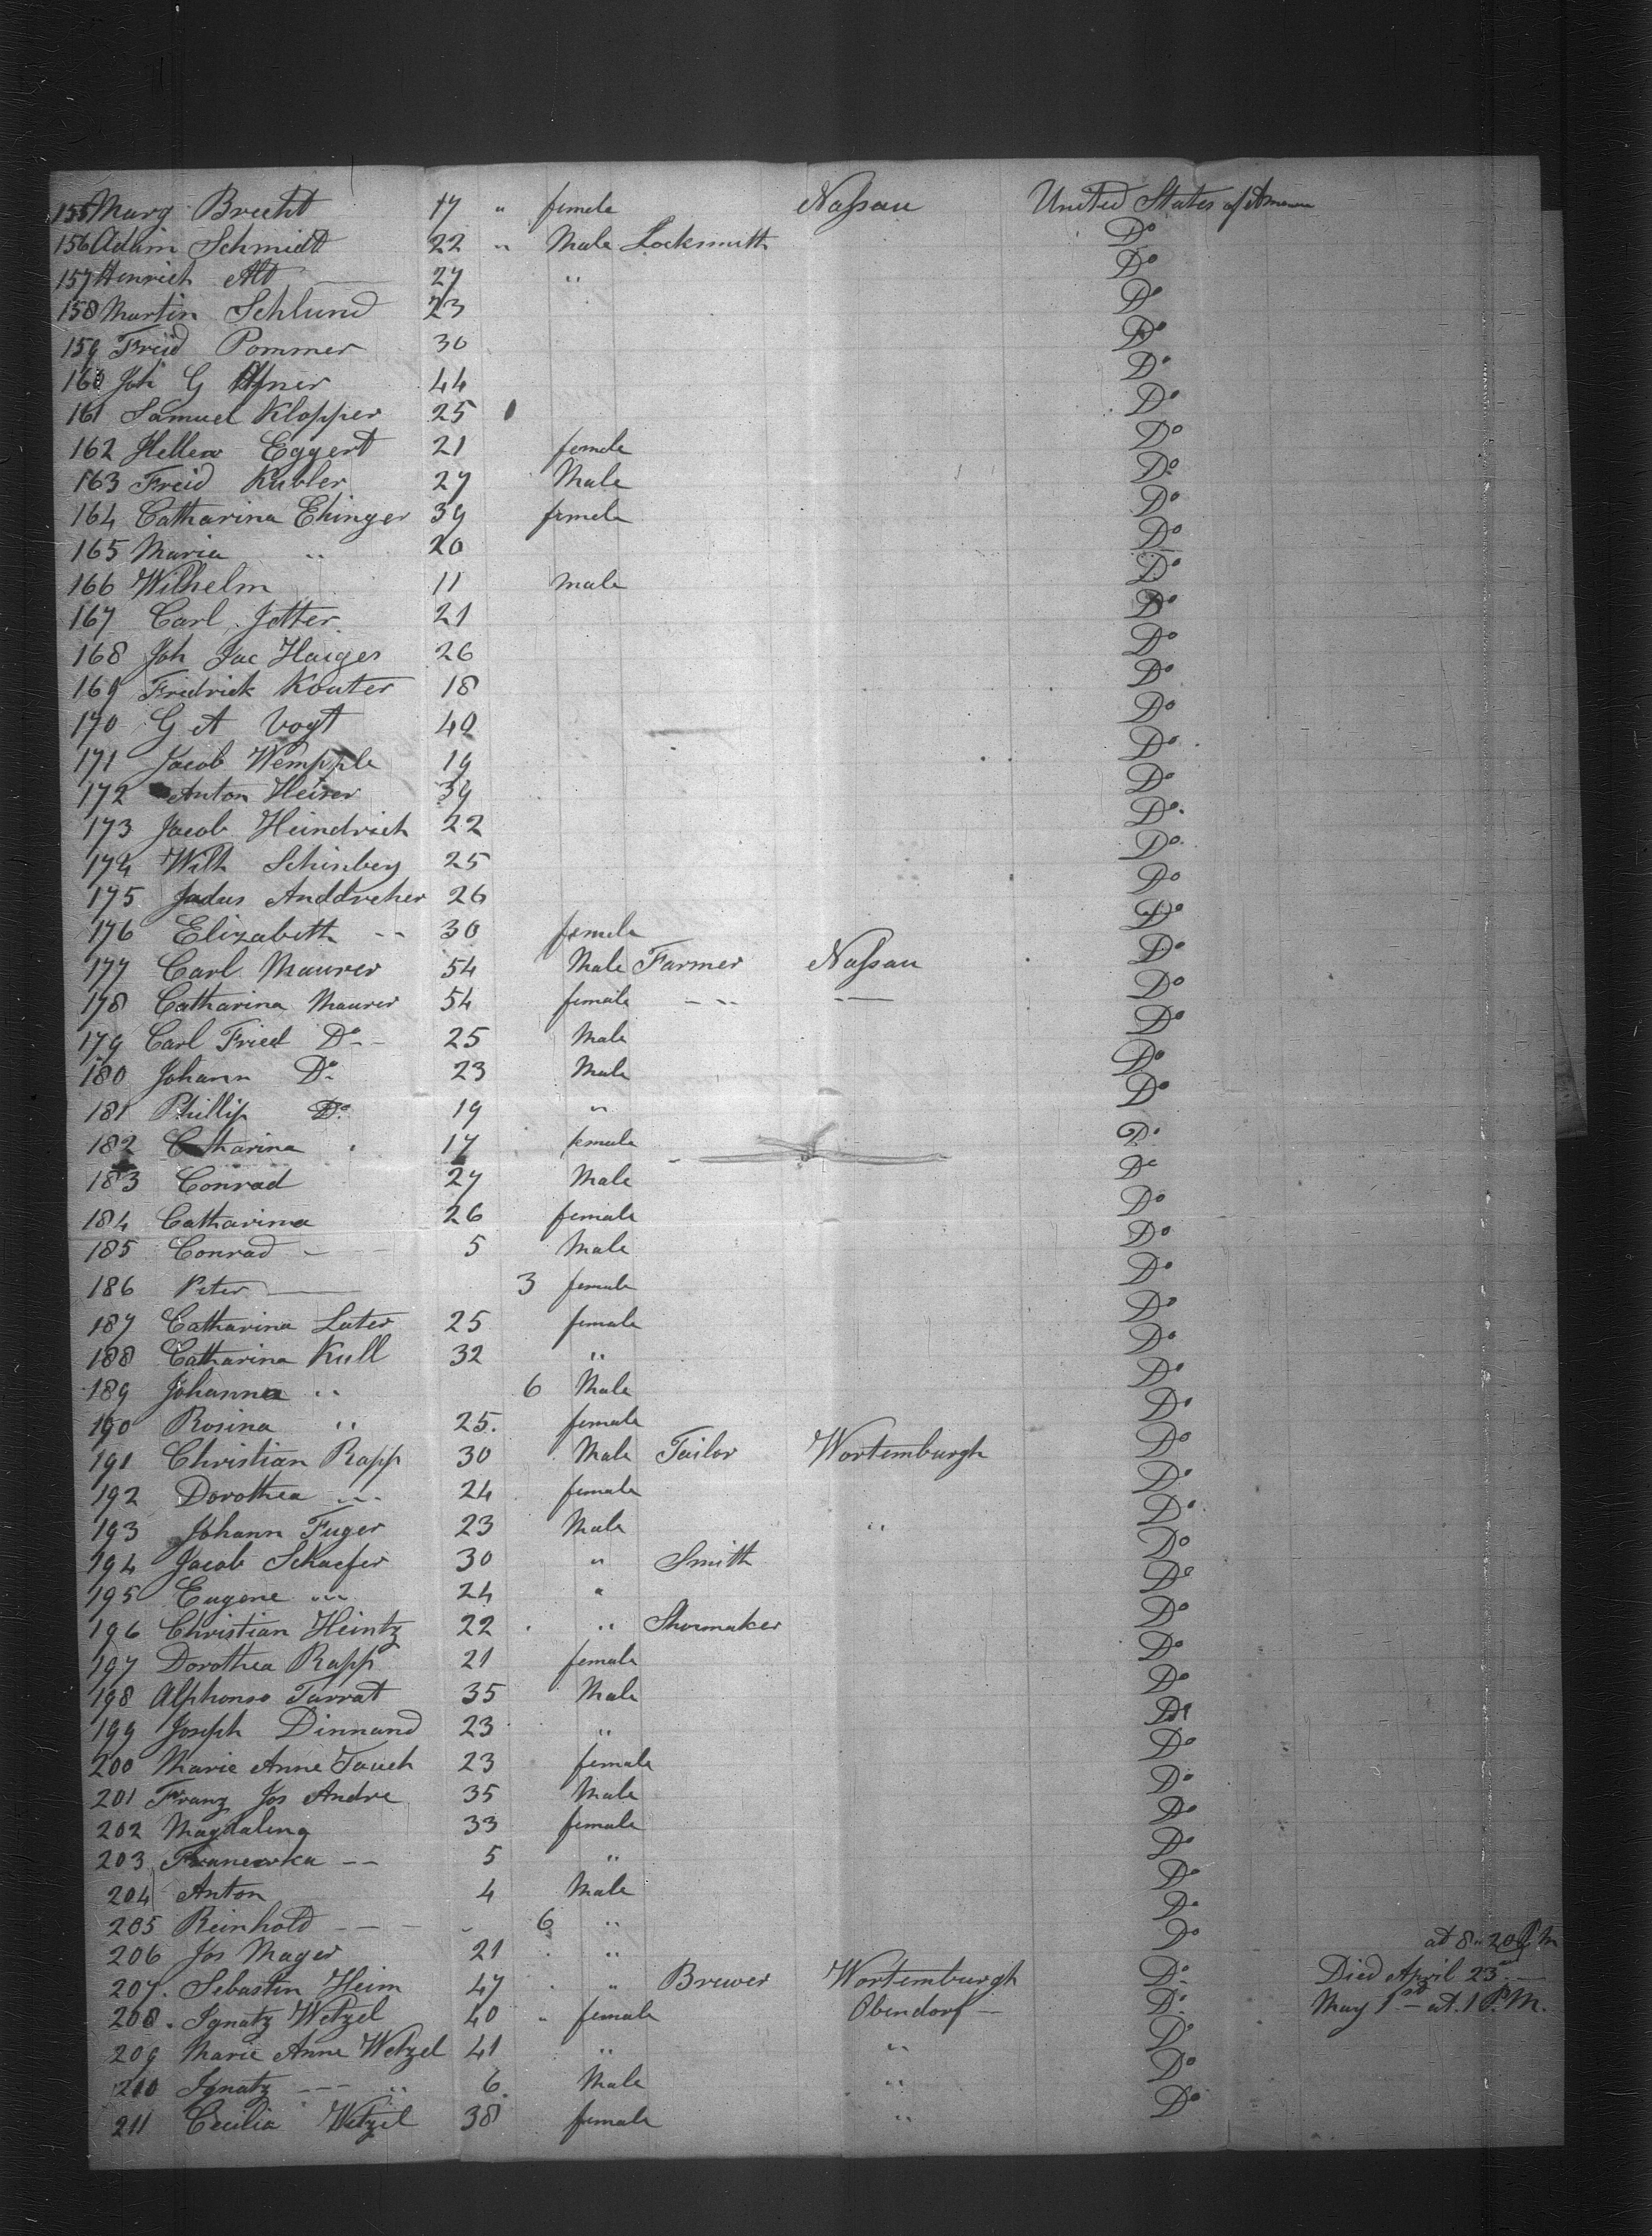 155 Marg Brecht 17 " female Nassau United States of America
156 Adam Schmidt 22 " Male Locksmith Do
157 Henrich Alt 27 " Do
158 Martin Schlund 23 Do
159 Freid Pommer 30 Do
160 Joh G 44 Do
161 Samuel Klopper 25 Do
162 Hellen Eggert 21 female Do
163 Freid Kubler 27 Male Do
164 Catharina Ehinger 39 female Do
165 Maria " 20 Do
166 Wilhelm 11 male Do
167 Carl Jetter 21 Do
168 Joh Jac Haiges 26 Do
169 Fredrick Kouter 18 Do
170 G A Vogt 40 Do
171 Jacob Wempple 19 Do
172 Anton Heiser 39 Do
173 Jacob Heindrich 22 Do
174 Wilh Schinberg 25 Do
175 Judus Anddreher 26 Do
176 Elizabeth -- 30 female Do
177 Carl Maurer 54 Male Farmer Nassau Do
178 Catharina Maurer 54 female - -- -- Do
179 Carl Fried Do -- 25 Male Do
180 Johann Do 23 Male Do
181 Phillip Do 19 " Do
182 Catharina 17 female Do
183 Conrad 27 Male Do
184 Catharina 26 female Do
185 Conrad - - 5 Male Do
186 Peter — 3 female Do
187 Catharina Luter 25 female Do
188 Catharina Kull 32 " Do
189 Johanna " 6 Male Do
190 Rosina " 25. female Do
191 Christian Rapp 30 Male Tailor Wortemburgh Do
192 Dorothea " 24 female Do
193 Johann Fuger 23 Male " Do
194 Jacob Schaefer 30 " Smith Do
195 Eugene " 24 " Do
196 Christian Heintz 22 " Shoemaker Do
197 Dorothea Rapp 21 female Do
198 Alphonse Tarrat 35 Male Do
199 Joseph Dinnand 23 " Do
200 Marie Anne Tauch 23 female Do
201 Franz Jos Andre 35 Male Do
202 Magdalena 33 female Do
203 -- 5 " Do
204 Anton 4 Male Do
205 Reinhold - - - 6 " Do
206 Jos Mayer 21 " Do at 8.20 P M
207. Sebastin Heim 47 " Brewer Wortemburgh Do Died April 23rd —
208. Ignatz Wetzel 40 " female Obendorf — Do May 1st — at 1 P.M.
209 Marie Anne Wetzel 41 " " Do
210 Ignatz --- " 6. Male " Do
211 Cecilia Wetzel 38 female " Do